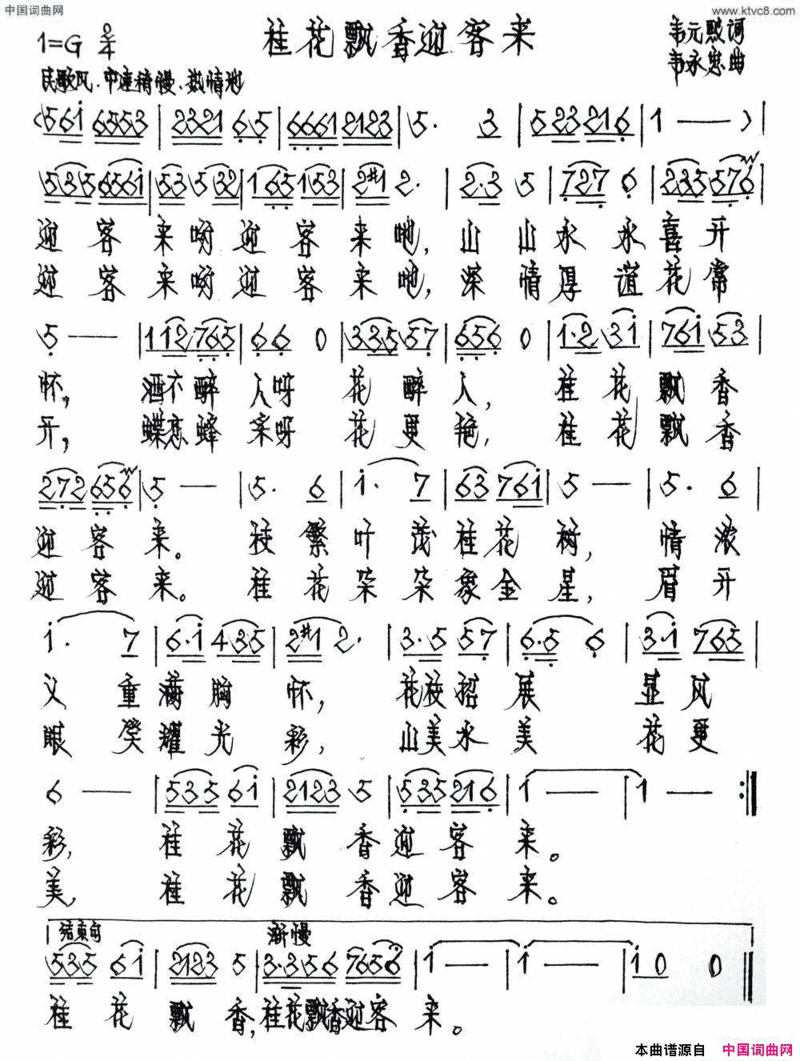 中国词曲网
www.ktvc8.com
桂花飘香迎客来
1=G 2/4
韦元骏词
韦永忠曲
民歌风、中速稍慢、热情地
(561 6553 | 2321 65 | 6661 2123 | 5. 3 | 523216 | 1 — — )
535 6561 | 535 532 | 165 153 | 2#1 2. | 2·3 5 | 727 6 | 2355 76 |
迎客来哟迎客来吔,山山水水喜开
迎客来哟迎客来吔,深情厚谊花常
5 — — | 112765 | 66 0 | 335557 | 656 0 | 1·2 31 | 761 53 |
怀, 酒不醉人呀 花醉人, 桂花飘香
开, 蝶恋蜂采呀 花更艳, 桂花飘香
272 656 | 5 — | 5. 6 | 1. 7 | 63 761 | 5 — — | 5. 6 |
迎客来。枝繁叶茂桂花树, 情浓
迎客来。桂花朵朵象金星, 眉开
1. 7 | 6·1 435 | 2#1 2. | 3·5 57 | 6·5 6 | 3·1 765 |
义重满胸怀, 花枝招展 显风
眼笑耀光彩, 山美水美 花更
6 — — | 535 61 | 2123 5 | 535 216 | 1 — — | 1 — — :||
彩, 桂花飘香迎客来。
美, 桂花飘香迎客来。
结束句 渐慢
535 61 | 2123 5 | 3·356 7656 | 1 — — | 1 — — | 10 0 ||
桂花飘香,桂花飘香迎客来。
本曲谱源自 中国词曲网